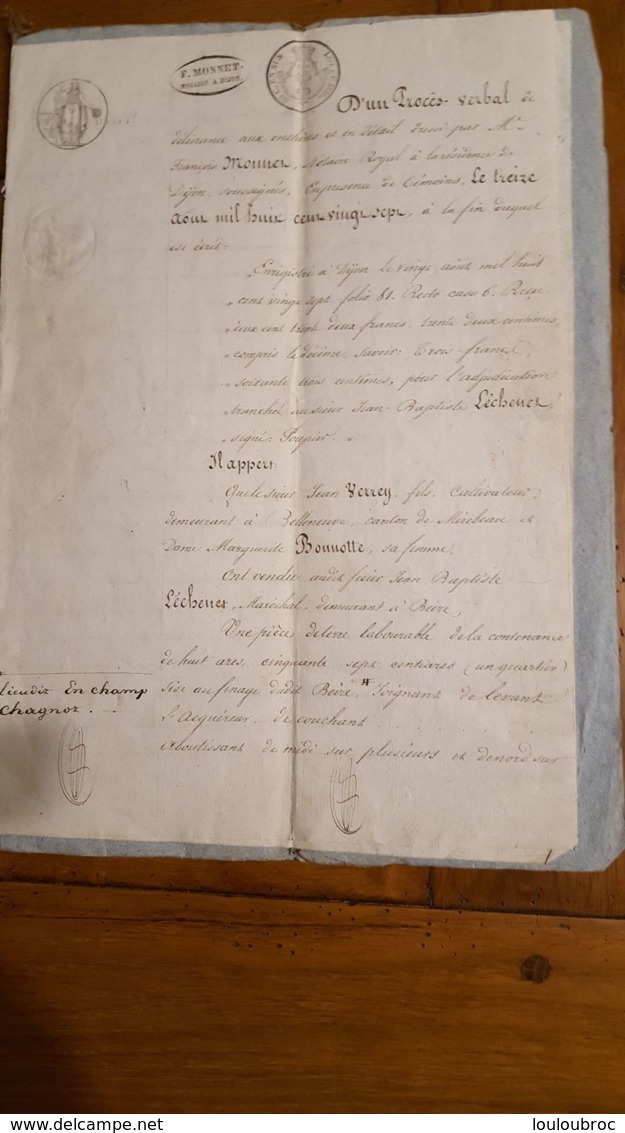 F. MONNET
NOTAIRE A DIJON
D'un Procès-verbal de
délivrance aux enchères et en détail dressé par Me
François Monnet, Notaire Royal à la résidence de
Dijon, soussigné, En présence de témoins, Le treize
aout mil huit cent vingt sept, à la fin duquel
est écrit:
"Enregistré à Dijon le vingt aout mil huit
"cent vingt sept folio 81. Recto case 6. Reçu
"deux cent trente deux francs trente deux centimes,
"compris le décime, savoir: trois francs
"soixante trois centimes, pour l'adjudication
"tranchée au sieur Jean-Baptiste Léchenet,
"signé: Poupier."
Il appert
Que le sieur Jean Verrey, fils, Cultivateur,
demeurant à Belleneuve, canton de Mirebeau et
Dame Marguerite Bonnotte, sa femme,
Ont vendu audit sieur Jean Baptiste
Léchenet, Maréchal, demeurant à Beire,
Une pièce de terre labourable de la contenance
de huit ares, cinquante sept centiares (un quartier)
lieudit En champ
Chagnot.
Sise au finage dudit Beire, # Joignant de levant
l'Acquéreur, de couchant
Aboutissant de midi sur plusieurs et de nord sur
delcampe.net
louloubroc